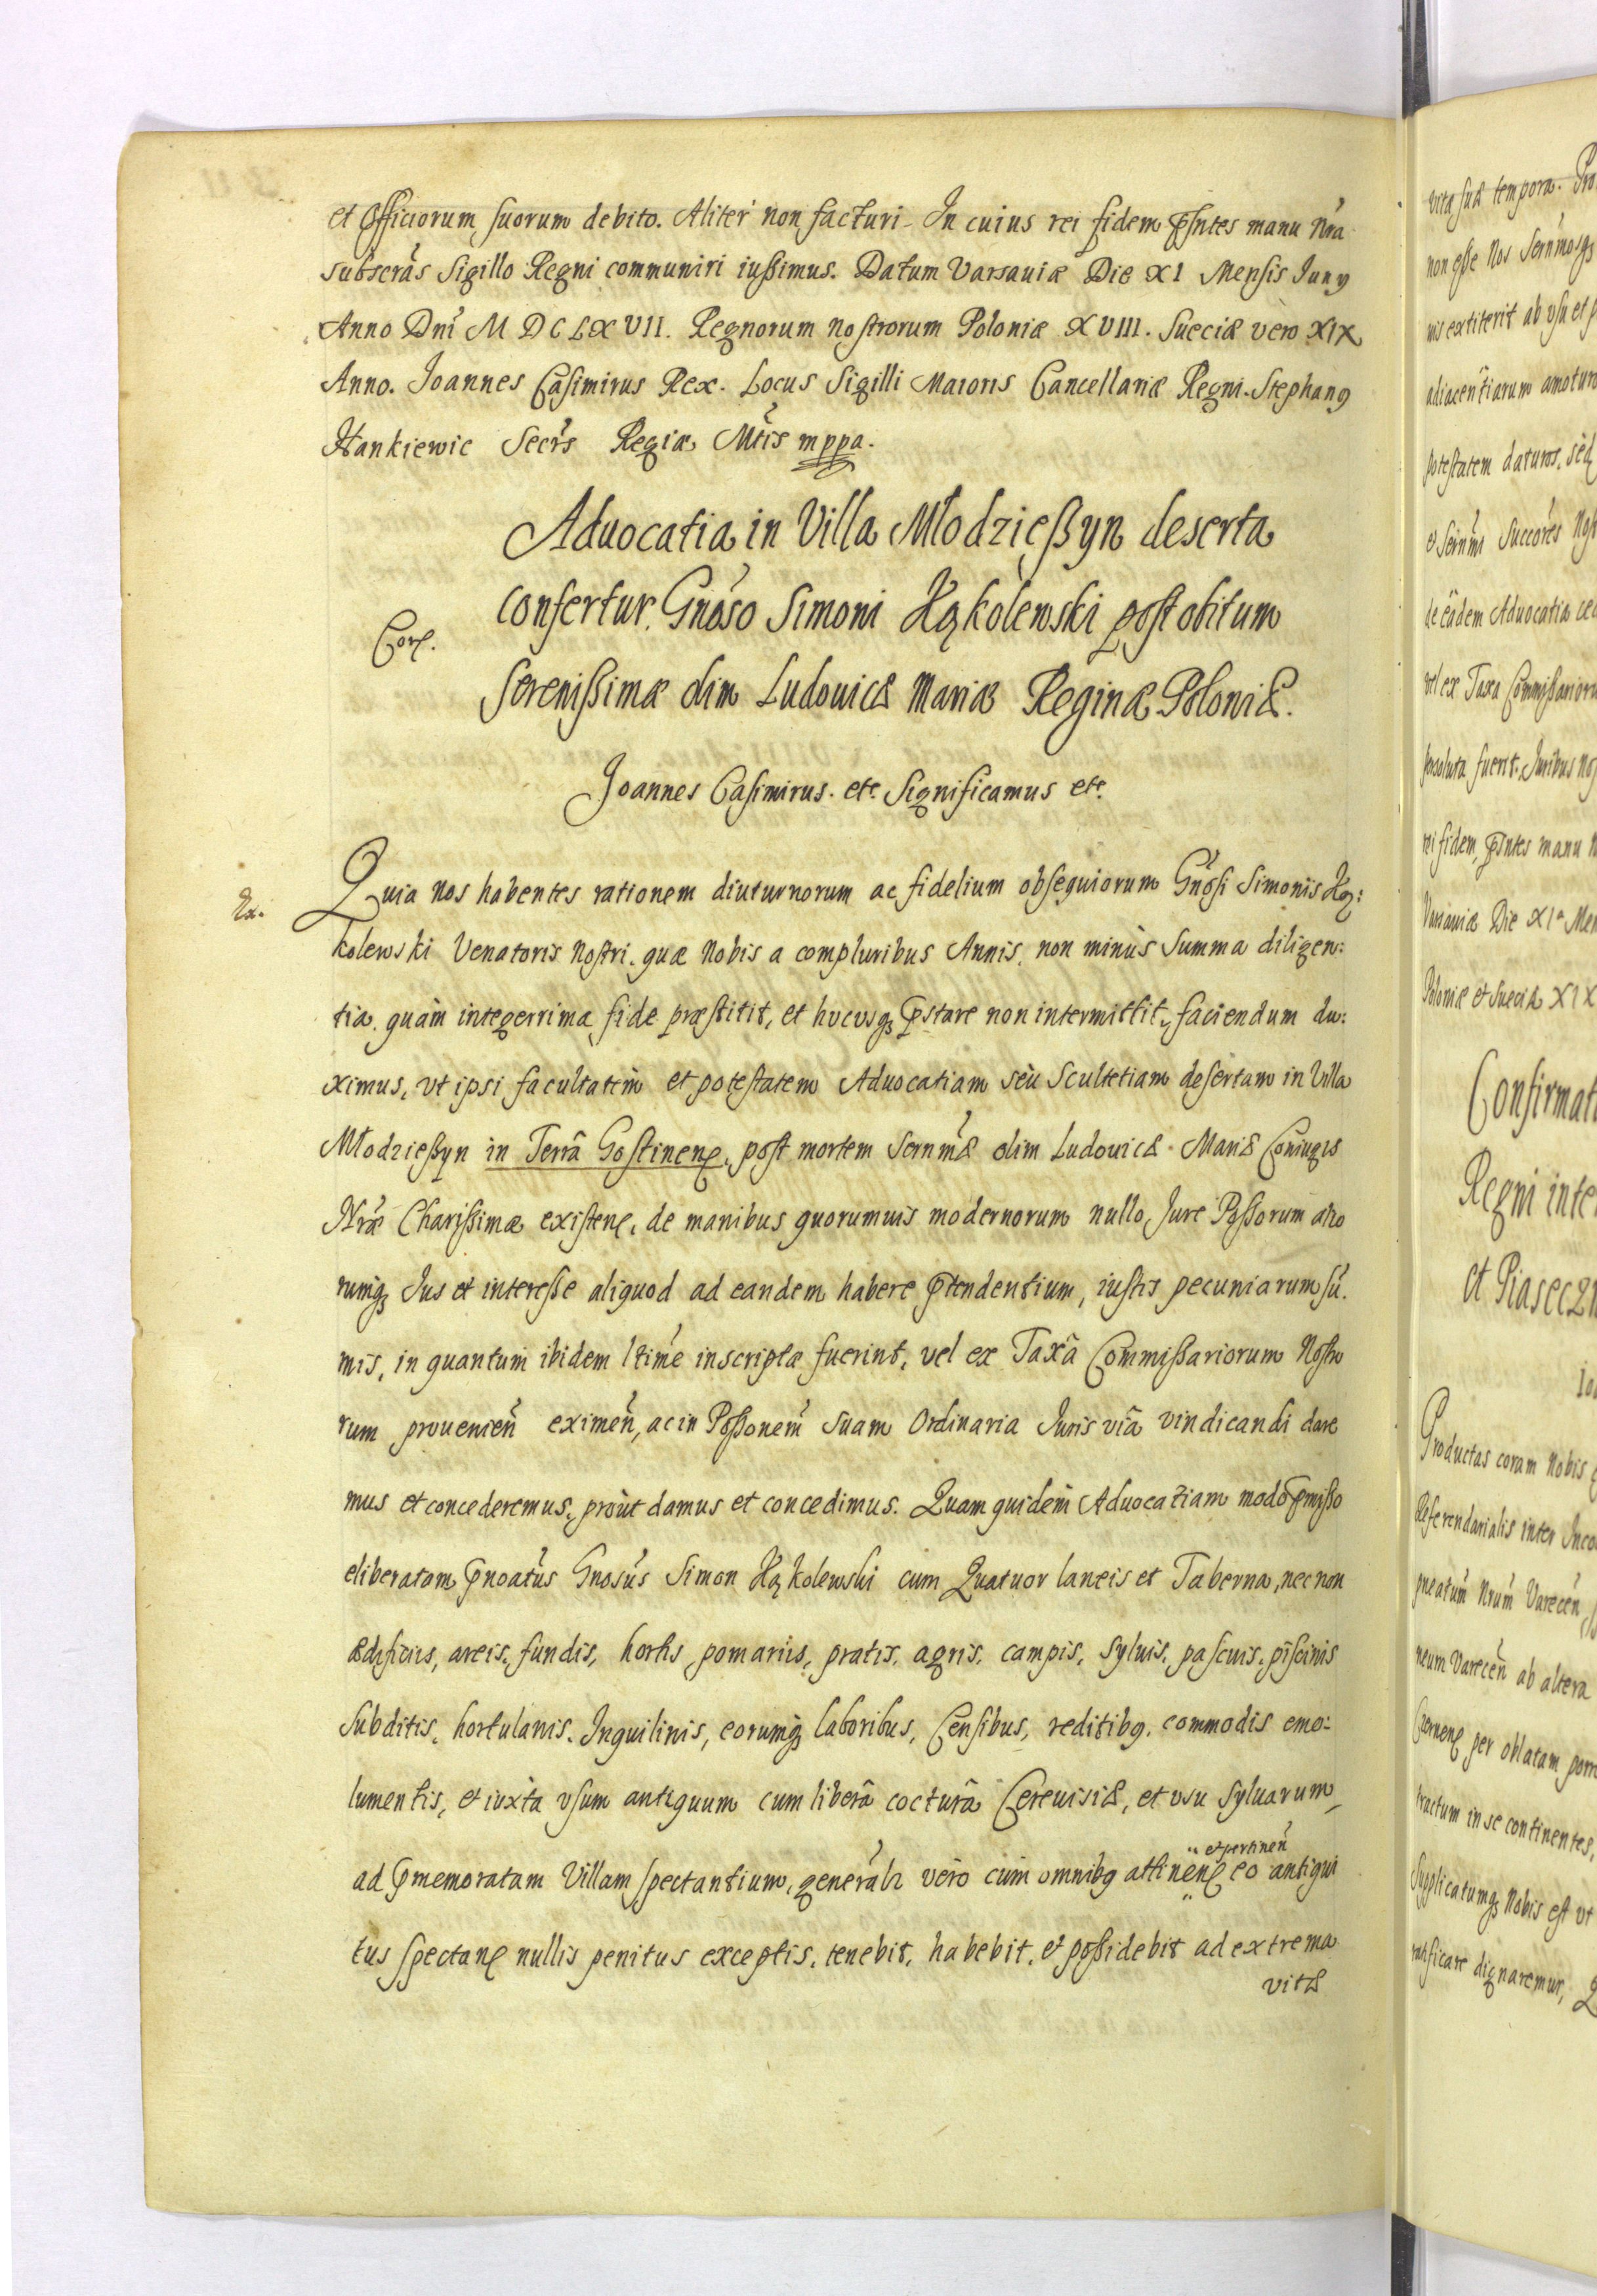 et Officiorum suorum debito. Aliter non facturi. In cuius rei fidem pñtes manu Nra
subscras Sigillo Regni communiri iussimus. Datum Varsaviæ Die XI Mensis Juny
Anno Dni M DC LX VII. Regnorum nostrorum Poloniæ XVIII. Sueciæ vero XIX
Anno. Joannes Casimirus Rex. Locus Sigilli Maioris Cancellariæ Regni. Stephan9
Hankiewic Secrs Regiæ Mtis mppa.
Advocatia in Villa Młodzießyn deserta
confertur Gnoso Simoni Kąkolewski post obitum
Core.
Serenißimæ olim Ludovicæ Mariæ Reginæ Poloniæ.
Joannes Casimirus. etc. Significamus etc.
Ex.
Quia nos habentes rationem diuturnorum ac fidelium obsequiorum Gnosi Simonis Ką:
kolewski Venatoris Nostri. quæ Nobis a compluribus Annis, non minus summa diligen:
tia, quàm integerrima fide præstitit, et hucusq; pstare non intermittit, faciendum du:
ximus, vt ipsi facultatem et potestatem Advocatiam seu Scultetiam desertam in Villa
Młodzießyn in Terrâ Gostinen, post mortem Sernmæ olim Ludovicæ Mariæ Coniugis
Nræ Charißimæ existen, de manibus quorumuis modernorum nullo Jure Poßorum alio
rumq; Jus et interesse aliquod ad eandem habere ptendentium, iustis pecuniarum su.
mis, in quantum ibidem ltime inscriptæ fuerint, vel ex Taxâ Commißariorum Nostro
rum provenien eximen, ac in Poßonem suam Ordinaria Juris viâ vindicandi dare
mus et concederemus, prout damus et concedimus. Quam quidem Advocatiam modo pmißo
eliberatam pnoatus Gnosus Simon Kąkolewski cum Quatuor laneis et Taberna, nec non
ædificiis, areis, fundis, hortis, pomariis, pratis, agris, campis, Syluis, pascuis, piscinis
subditis, hortulanis, Inquilinis, eorumq; laboribus, Censibus, reditib9, commodis emo:
lumentis, et iuxta vsum antiquum cum liberâ cocturâ Cerevisiæ, et vsu sylvarum,
et pertinen
ad pmemoratam Villam spectantium, generalr vero cum omnib9 attinen eo antiqui
tus spectan nullis penitus exceptis, tenebit, habebit, et poßidebit ad extrema
vitæ
vitæ suæ tempora. Pro
non eße Nos Sernmosq;
uis extiterit ab vsu et p
adiacentiarum amoturo
potestatem daturos, sed
et Sernmi Succores Nos
de eâdem Advocatia ce
vel ex Taxa Commißarioru
persoluta fuerit. Juribus No
rei fidem pñtes manu N
Varsaviæ Die XIa Men
Poloniæ et Sueciæ XIX
Confirmati
Regni inte
et Piaseczn
Io
Productas coram Nobis e
Referendarialis inter Inco
neum Varecen ab altera
per oblatam porre
tractum in se continentes,
Supplicatumq; Nobis est vt
ratificare dignaremur, Q